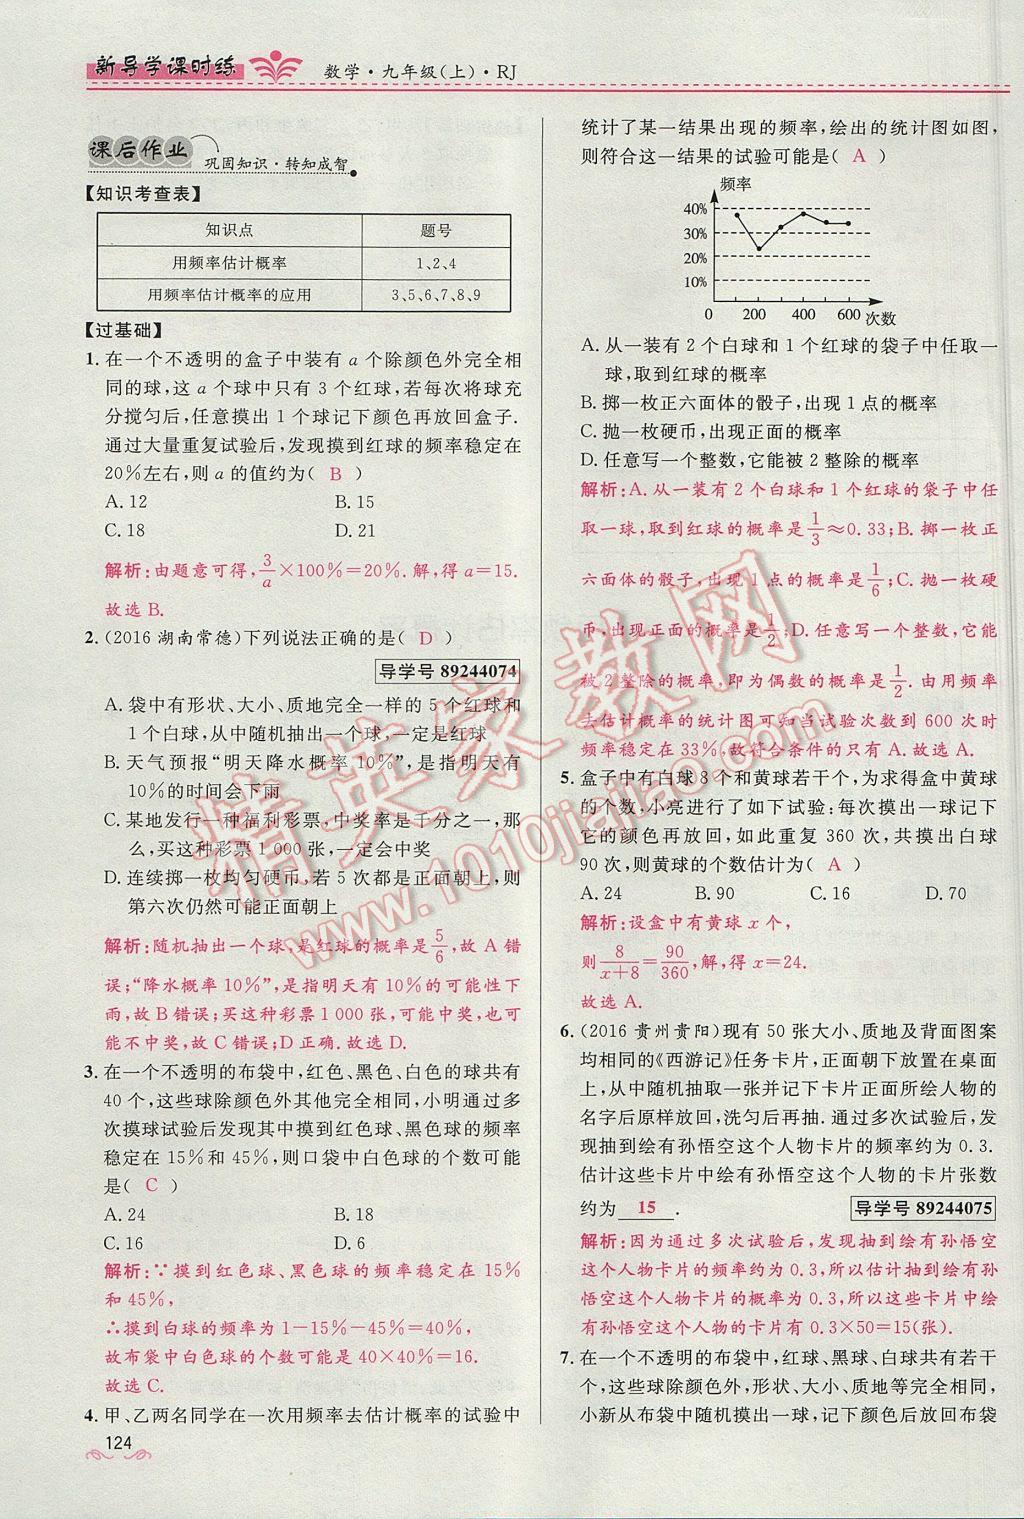 新导学课时练
数学·九年级(上)·RJ
课后作业
巩固知识·转知成智
【知识考查表】
知识点 题号
用频率估计概率 1、2、4
用频率估计概率的应用 3、5、6、7、8、9
【过基础】
1. 在一个不透明的盒子中装有 a 个除颜色外完全相
同的球,这 a 个球中只有 3 个红球,若每次将球充
分搅匀后,任意摸出 1 个球记下颜色再放回盒子.
通过大量重复试验后,发现摸到红球的频率稳定在
20%左右,则 a 的值约为( B )
A. 12 B. 15
C. 18 D. 21
解析:由题意可得,3/a×100%=20%.解,得 a=15.
故选 B.
2. (2016 湖南常德)下列说法正确的是( D )
导学号 89244074
A. 袋中有形状、大小、质地完全一样的 5 个红球和
1 个白球,从中随机抽出一个球,一定是红球
B. 天气预报“明天降水概率 10%”,是指明天有
10%的时间会下雨
C. 某地发行一种福利彩票,中奖率是千分之一,那
么,买这种彩票 1 000 张,一定会中奖
D. 连续掷一枚均匀硬币,若 5 次都是正面朝上,则
第六次仍然可能正面朝上
解析:随机抽出一个球,是红球的概率是5/6,故 A 错
误;“降水概率 10%”,是指明天有 10%的可能性下
雨,故 B 错误;买这种彩票 1 000 张,可能中奖,也可
能不中奖,故 C 错误;D 正确.故选 D.
3. 在一个不透明的布袋中,红色、黑色、白色的球共有
40 个,这些球除颜色外其他完全相同,小明通过多
次摸球试验后发现其中摸到红色球、黑色球的频率
稳定在 15%和 45%,则口袋中白色球的个数可能
是( C )
A. 24 B. 18
C. 16 D. 6
解析:∵摸到红色球、黑色球的频率稳定在 15%
和 45%,
∴摸到白球的频率为 1-15%-45%=40%,
故布袋中白色球的个数可能是 40×40%=16.
故选 C.
4. 甲、乙两名同学在一次用频率去估计概率的试验中
124
统计了某一结果出现的频率,绘出的统计图如图,
则符合这一结果的试验可能是( A )
频率
40%
30%
20%
10%
0 200 400 600 次数
A. 从一装有 2 个白球和 1 个红球的袋子中任取一
球,取到红球的概率
B. 掷一枚正六面体的骰子,出现 1 点的概率
C. 抛一枚硬币,出现正面的概率
D. 任意写一个整数,它能被 2 整除的概率
解析:A. 从一装有 2 个白球和 1 个红球的袋子中任
取一球,取到红球的概率是1/3≈0.33;B. 掷一枚正
六面体的骰子,出现 1 点的概率是1/6;C. 抛一枚硬
币,出现正面的概率是1/2;D. 任意写一个整数,它能
被 2 整除的概率,即为偶数的概率是1/2. 由用频率
去估计概率的统计图可知当试验次数到 600 次时
频率稳定在 33%,故符合条件的只有 A.故选 A.
5. 盒子中有白球 8 个和黄球若干个,为求得盒中黄球
的个数,小亮进行了如下试验:每次摸出一球记下
它的颜色再放回,如此重复 360 次,共摸出白球
90 次,则黄球的个数估计为( A )
A. 24 B. 90 C. 150 D. 70
解析:设盒中有黄球 x 个,
则8/(x+8)=90/360,解,得 x=24.
故选 A.
6. (2016 贵州贵阳)现有 50 张大小、质地及背面图案
均相同的《西游记》任务卡片,正面朝下放置在桌面
上,从中随机抽取一张并记下卡片正面所绘人物的
名字后原样放回,洗匀后再抽. 通过多次试验后,
发现抽到绘有孙悟空这个人物卡片的频率约为 0.3.
估计这些卡片中绘有孙悟空这个人物的卡片张数
约为 15 .
导学号 89244075
解析:因为通过多次试验后,发现抽到绘有孙悟空
这个人物卡片的频率约为 0.3,所以估计抽到绘有孙
悟空这个人物卡片的概率为 0.3,所以这些卡片中绘
有孙悟空这个人物的卡片有 0.3×50=15(张).
7. 在一个不透明的布袋中,红球、黑球、白球共有若干
个,这些球除颜色外,形状、大小、质地等完全相同,
小新从布袋中随机摸出一球,记下颜色后放回布袋
精英家教网
www.1010jiajiao.com